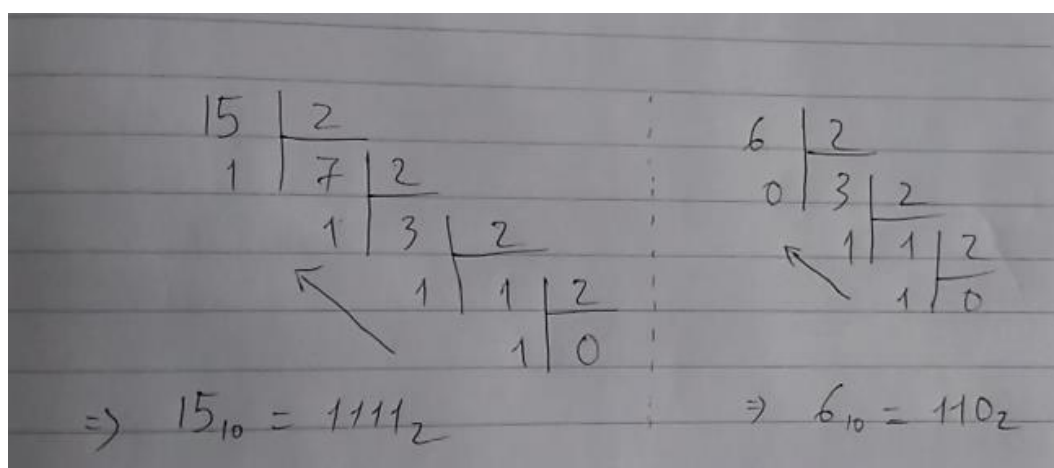 15 | 2
1 | 7 | 2
1 | 3 | 2
1 | 1 | 2
1 | 0
=> 15₁₀ = 1111₂
6 | 2
0 | 3 | 2
1 | 1 | 2
1 | 0
=> 6₁₀ = 110₂